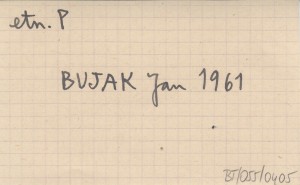 etn. P
BUJAK Jan 1961
BJ/055/0405